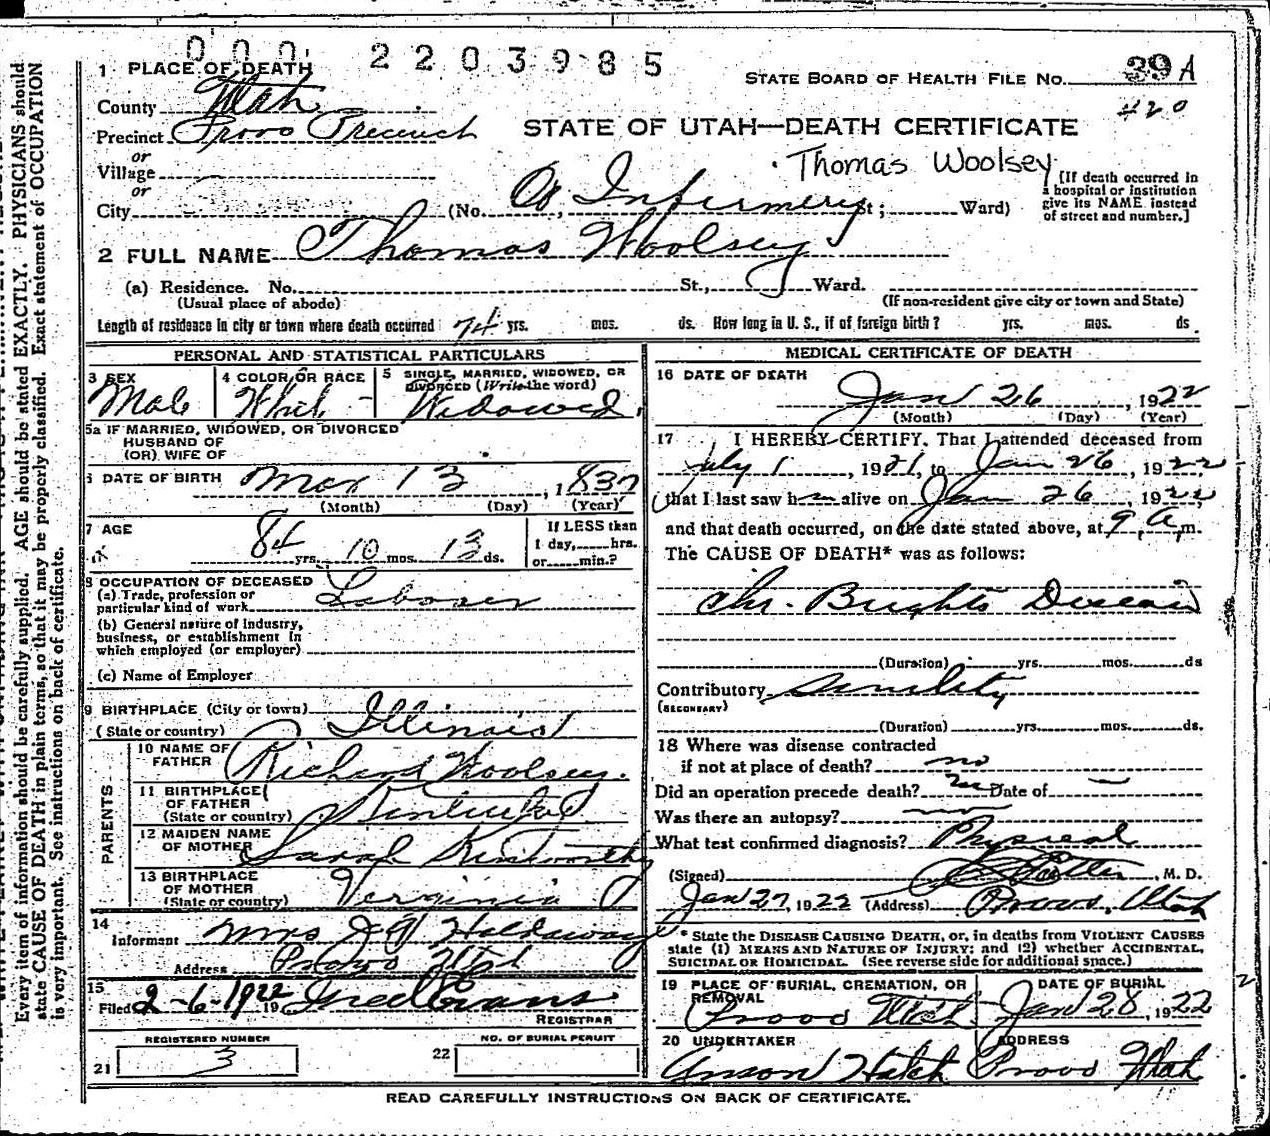 000 2203985
1 PLACE OF DEATH
STATE BOARD OF HEALTH FILE NO. 39A
County Utah
420
Precinct Provo Precinct
STATE OF UTAH—DEATH CERTIFICATE
or
Thomas Woolsey
Village
or
City (No. Infirmery St; Ward)
[If death occurred in
a hospital or institution
give its NAME instead
of street and number.]
2 FULL NAME Thomas Woolsey
(a) Residence. No. St., Ward.
(Usual place of abode) (If non-resident give city or town and State)
Length of residence in city or town where death occurred 74 yrs. mos. ds. How long in U. S., if of foreign birth? yrs. mos. ds.
PERSONAL AND STATISTICAL PARTICULARS
3 SEX
Male
4 COLOR OR RACE
White
5 SINGLE, MARRIED, WIDOWED, OR
DIVORCED (Write the word)
Widowed
5a IF MARRIED, WIDOWED, OR DIVORCED
HUSBAND OF
(OR) WIFE OF
6 DATE OF BIRTH Mar 13, 1837
(Month) (Day) (Year)
7 AGE
84 yrs. 10 mos. 13 ds.
If LESS than
1 day, hrs.
or min.?
8 OCCUPATION OF DECEASED
(a) Trade, profession or
particular kind of work Laborer
(b) General nature of industry,
business, or establishment in
which employed (or employer)
(c) Name of Employer
9 BIRTHPLACE (City or town)
(State or country) Illinois
PARENTS
10 NAME OF
FATHER Richard Woolsey.
11 BIRTHPLACE
OF FATHER
(State or country) Kentucky
12 MAIDEN NAME
OF MOTHER Sarah Kenworthy
13 BIRTHPLACE
OF MOTHER
(State or country) Verginia
14
Informant Mrs J W Holdaway
Address Provo Utah
15
Filed 2-6-1922 19 Fred Evans
REGISTRAR
REGISTERED NUMBER
21 3
NO. OF BURIAL PERMIT
22
MEDICAL CERTIFICATE OF DEATH
16 DATE OF DEATH
Jan 26, 1922
(Month) (Day) (Year)
17 I HEREBY CERTIFY, That I attended deceased from
July 1, 1921, to Jan 26, 1922
that I last saw him alive on Jan 26, 1922,
and that death occurred, on the date stated above, at 9 a.m.
The CAUSE OF DEATH* was as follows:
Chr. Brights Disease
(Duration) yrs. mos. ds
Contributory senility
(SECONDARY)
(Duration) yrs. mos. ds.
18 Where was disease contracted
if not at place of death? no
Did an operation precede death? no Date of —
Was there an autopsy? no
What test confirmed diagnosis? Physical
(Signed) M. D.
Jan 27, 1922 (Address) Provo, Utah
* State the DISEASE CAUSING DEATH, or, in deaths from VIOLENT CAUSES
state (1) MEANS AND NATURE OF INJURY; and (2) whether ACCIDENTAL,
SUICIDAL OR HOMICIDAL. (See reverse side for additional space.)
19 PLACE OF BURIAL, CREMATION, OR
REMOVAL
Provo Utah
DATE OF BURIAL
Jan 28, 1922
20 UNDERTAKER
Anson Hatch
ADDRESS
Provo Utah
READ CAREFULLY INSTRUCTIONS ON BACK OF CERTIFICATE.
Every item of information should be carefully supplied. AGE should be stated EXACTLY. PHYSICIANS should
state CAUSE OF DEATH in plain terms, so that it may be properly classified. Exact statement of OCCUPATION
is very important. See instructions on back of certificate.